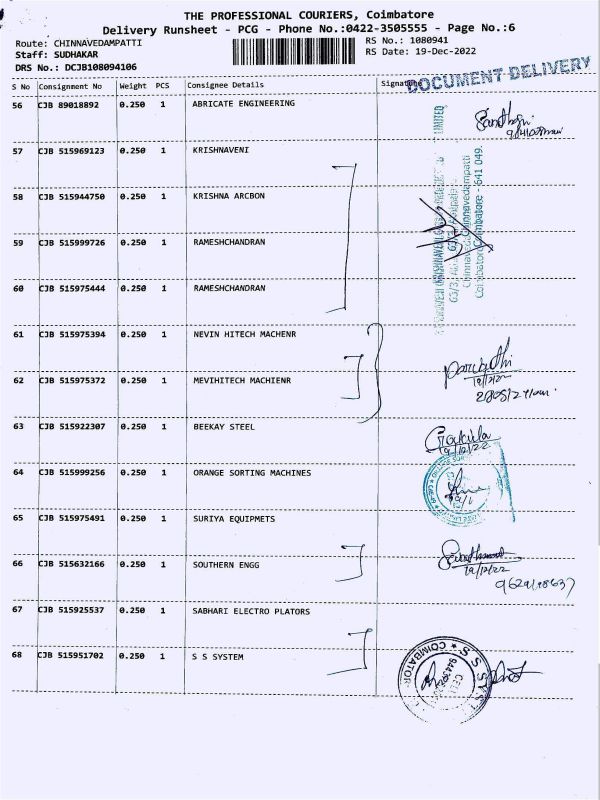 THE PROFESSIONAL COURIERS, Coimbatore
Delivery Runsheet - PCG - Phone No.:0422-3505555 - Page No.:6
Route: CHINNAVEDAMPATTI
RS No.: 1080941
Staff: SUDHAKAR
RS Date: 19-Dec-2022
DRS No.: DCJB108094106
S No Consignment No Weight PCS Consignee Details Signature
DOCUMENT DELIVERY
56 CJB 89018892 0.250 1 ABRICATE ENGINEERING
57 CJB 515969123 0.250 1 KRISHNAVENI
58 CJB 515944750 0.250 1 KRISHNA ARCBON
59 CJB 515999726 0.250 1 RAMESHCHANDRAN
60 CJB 515975444 0.250 1 RAMESHCHANDRAN
LIMITED
63/3,
Chinnavedampatti
Coimbatore - 641 049.
61 CJB 515975394 0.250 1 NEVIN HITECH MACHENR
62 CJB 515975372 0.250 1 MEVIHITECH MACHIENR
19/12/22
63 CJB 515922307 0.250 1 BEEKAY STEEL
Gokila
19/12/22
64 CJB 515999256 0.250 1 ORANGE SORTING MACHINES
65 CJB 515975491 0.250 1 SURIYA EQUIPMETS
66 CJB 515632166 0.250 1 SOUTHERN ENGG
19/12/22
67 CJB 515925537 0.250 1 SABHARI ELECTRO PLATORS
68 CJB 515951702 0.250 1 S S SYSTEM